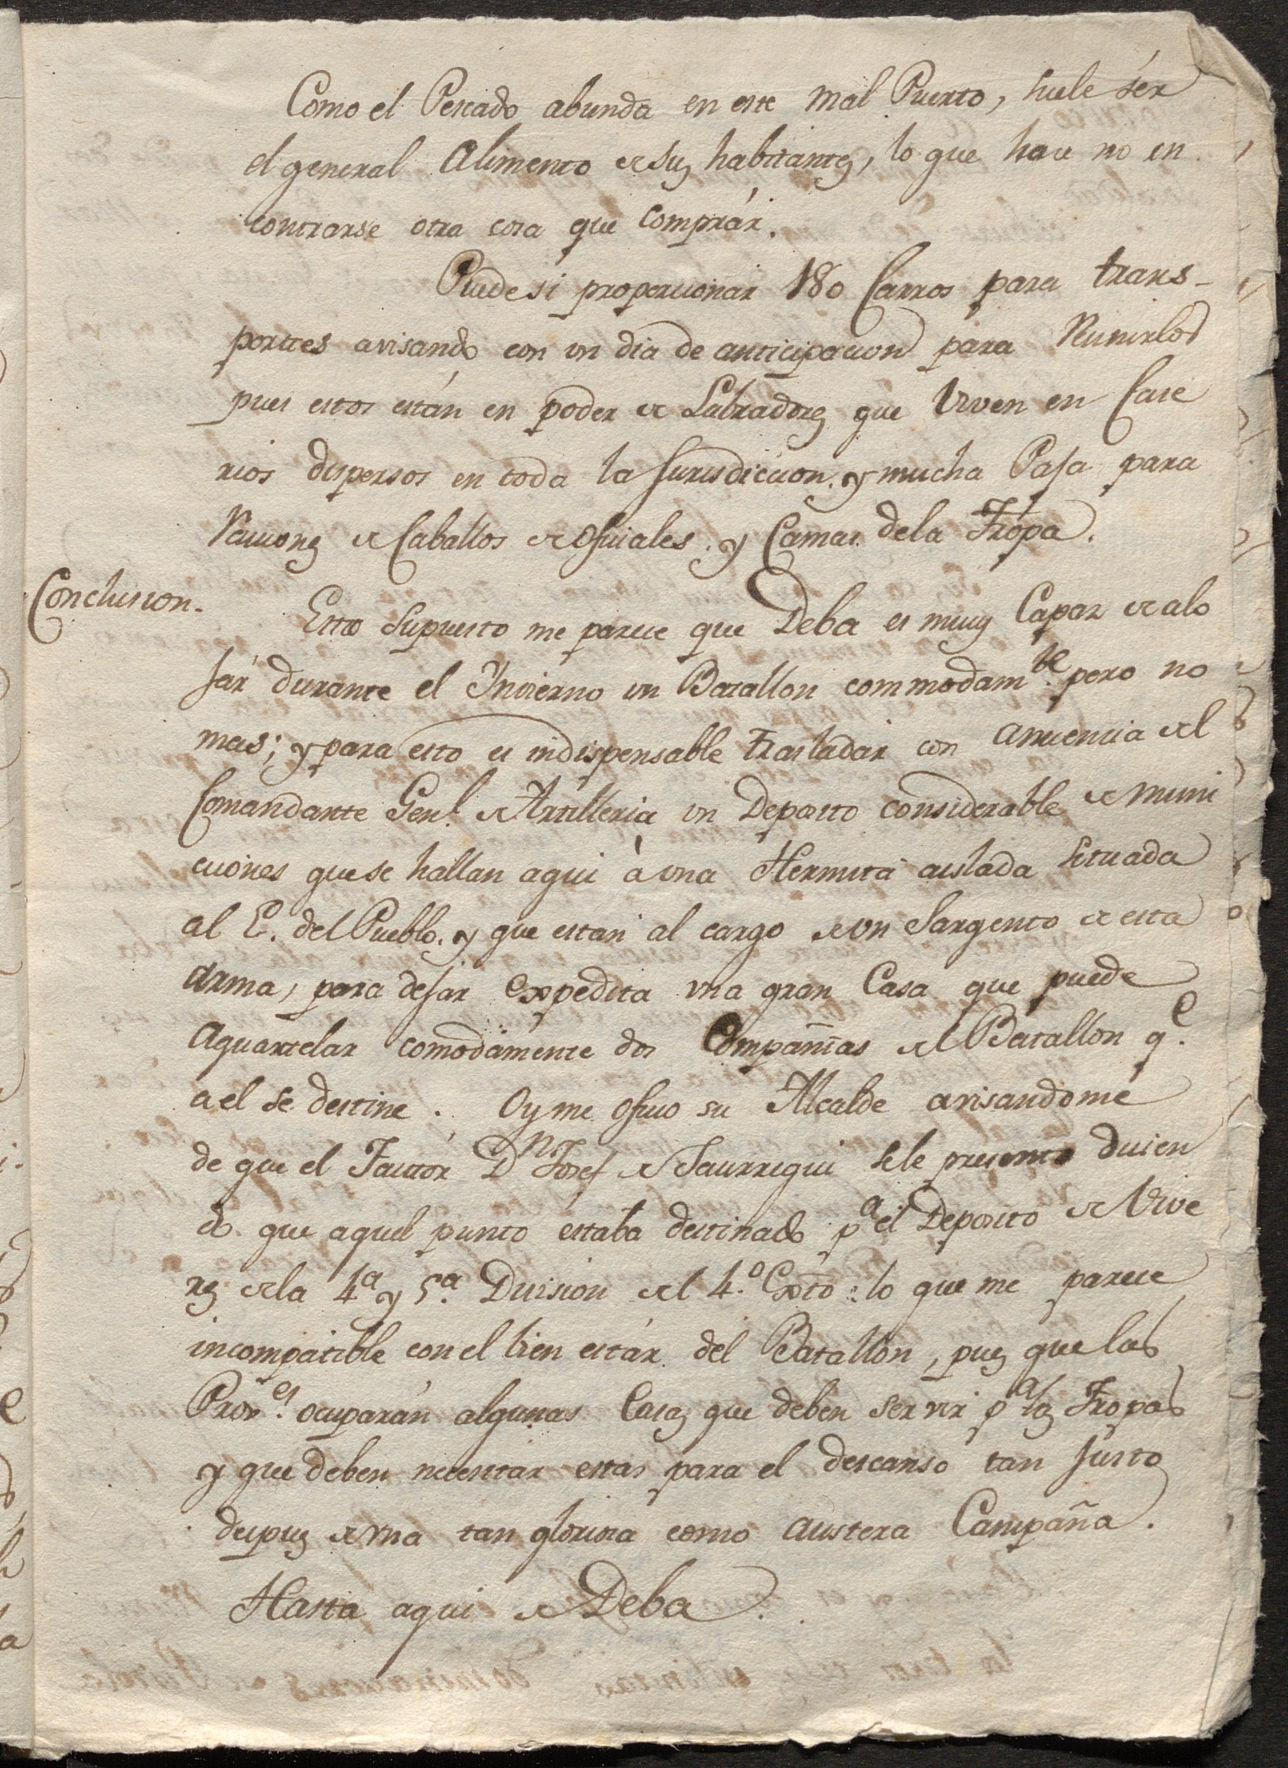 Como el Pescado abunda en este mal Puerto, suele sér
el general Alimento de sus habitantes, lo que hace no en
contrarse otra cosa que comprár.
Puede si proporcionar 180 Carros para trans-
portes avisando con un dia de anticipacion para Reunirlos
pues estos están en poder de Labradores que viven en Case
rios dispersos en toda la Jurisdiccion. y mucha Paja para
Raciones de Caballos de Oficiales. y Camas dela Tropa.
Conclusion.
Esto supuesto me parece que Deba es muy Capaz de alo
jár durante el Ynvierno un Batallon commodamte. pero no
mas; y para esto es indispensable trasladar con anuencia del
Comandante Genl. de Artilleria un Deposito considerable de muni
ciones que se hallan aqui à una Hermita aislada situada
al E. del Pueblo. y que estan al cargo de un Sargento de esta
arma, para dejar expedita una gran Casa que puede
aquartelar comodamente dos Compañias del Batallon qe.
a el se destine. Oy me oficio su Alcalde avisandome
de que el Factór Dn Josef de Jaurregui sele presento dicien
do que aquel punto estaba destinado pa el Deposito de Vive
res dela 4a y 5a. Division del 4.o Exto: lo que me parece
incompatible con el bien estár del Batallón, pues que las
Proves. ocuparán algunas Casas que deben servir pa las Tropas
y que deben necesitar estas para el descanso tan justo
despues de una tan gloriosa como austera Campaña.
Hasta aqui de Deba.